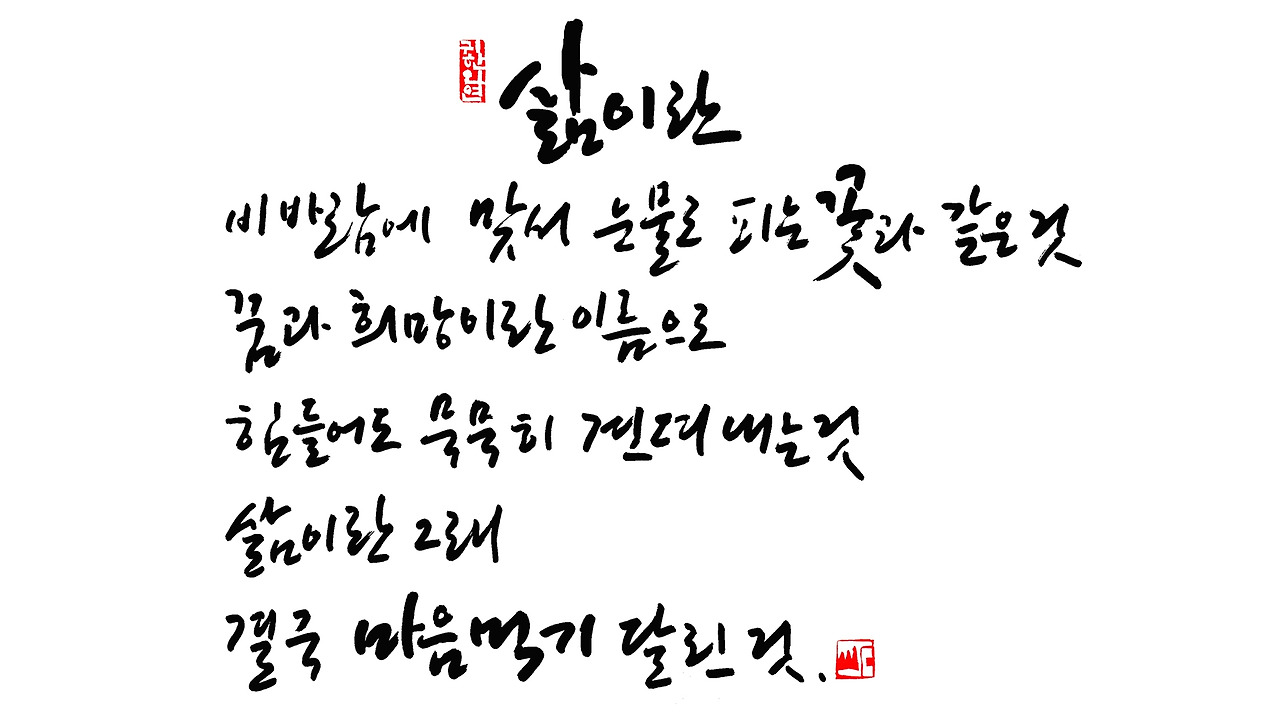 삶이란
비바람에 맞서 눈물로 피는 꽃과 같은 것
꿈과 희망이란 이름으로
힘들어도 묵묵히 견뎌 내는 것
삶이란 그래
결국 마음먹기 달린 것.